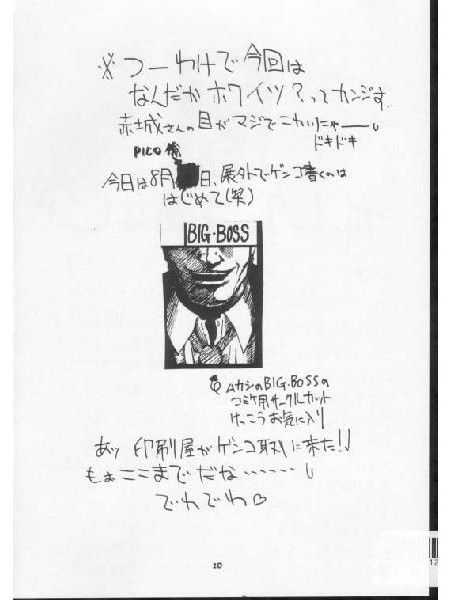 ※つーわけで今回は
なんだかホワイツ?ってカンジす
赤城さんの目がマジでこわいにゃーーし
ドキドキ
PICO
今日は8月 日、屋外でゲンコ書くのは
はじめて(笑)
BIG・BOSS
ムカシのBIG・BOSSの
コミケ用サークルカット
けっこうお気に入り
あっ 印刷屋がゲンコ取りに来た!!
もぉここまでだな……し
でわでわ♡
10
12